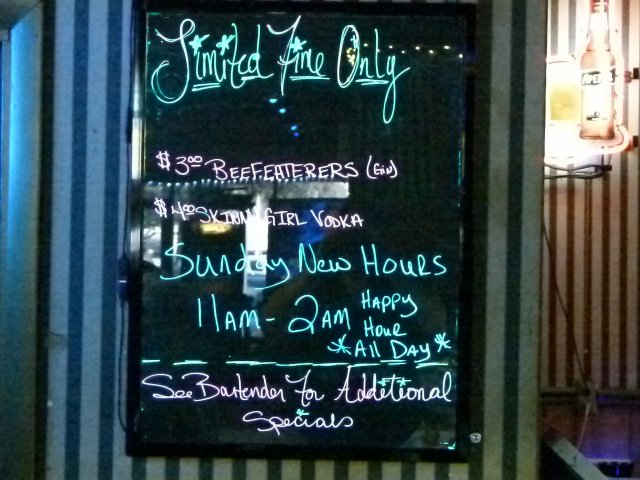 Limited Time Only
$3.00 BEEFEATERERS (Gin)
$4.00 SKINNYGIRL VODKA
Sunday New Hours
11AM - 2AM HAPPY
HOUR
*All Day*
See Bartender For Additional
Specials